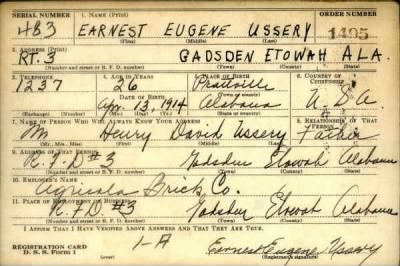 SERIAL NUMBER 1. NAME (Print) ORDER NUMBER
483 EARNEST EUGENE USSERY 1495
(First) (Middle) (Last)
2. ADDRESS (Print)
RT. 3 GADSDEN ETOWAH ALA.
(Number and street or R. F. D. number) (Town) (County) (State)
3. TELEPHONE 4. AGE IN YEARS 5. PLACE OF BIRTH 6. COUNTRY OF CITIZENSHIP
1237 26 Prattville
DATE OF BIRTH (Town or county)
Apr. 13, 1914 Alabama U.S.A
(Exchange) (Number) (Mo.) (Day) (Yr.) (State or country)
7. NAME OF PERSON WHO WILL ALWAYS KNOW YOUR ADDRESS 8. RELATIONSHIP OF THAT PERSON
Mr Henry David Ussery Father
(Mr., Mrs., Miss) (First) (Middle) (Last)
9. ADDRESS OF THAT PERSON
R.F.D #3 Gadsden Etowah Alabama
(Number and street or R. F. D. number) (Town) (County) (State)
10. EMPLOYER'S NAME
Agricola Brick Co.
11. PLACE OF EMPLOYMENT OR BUSINESS
R.F.D #3 Gadsden Etowah Alabama
(Number and street or R. F. D. number) (Town) (County) (State)
I AFFIRM THAT I HAVE VERIFIED ABOVE ANSWERS AND THAT THEY ARE TRUE.
REGISTRATION CARD
D. S. S. Form 1 1-A Earnest Eugene Ussery
(Registrant's signature)